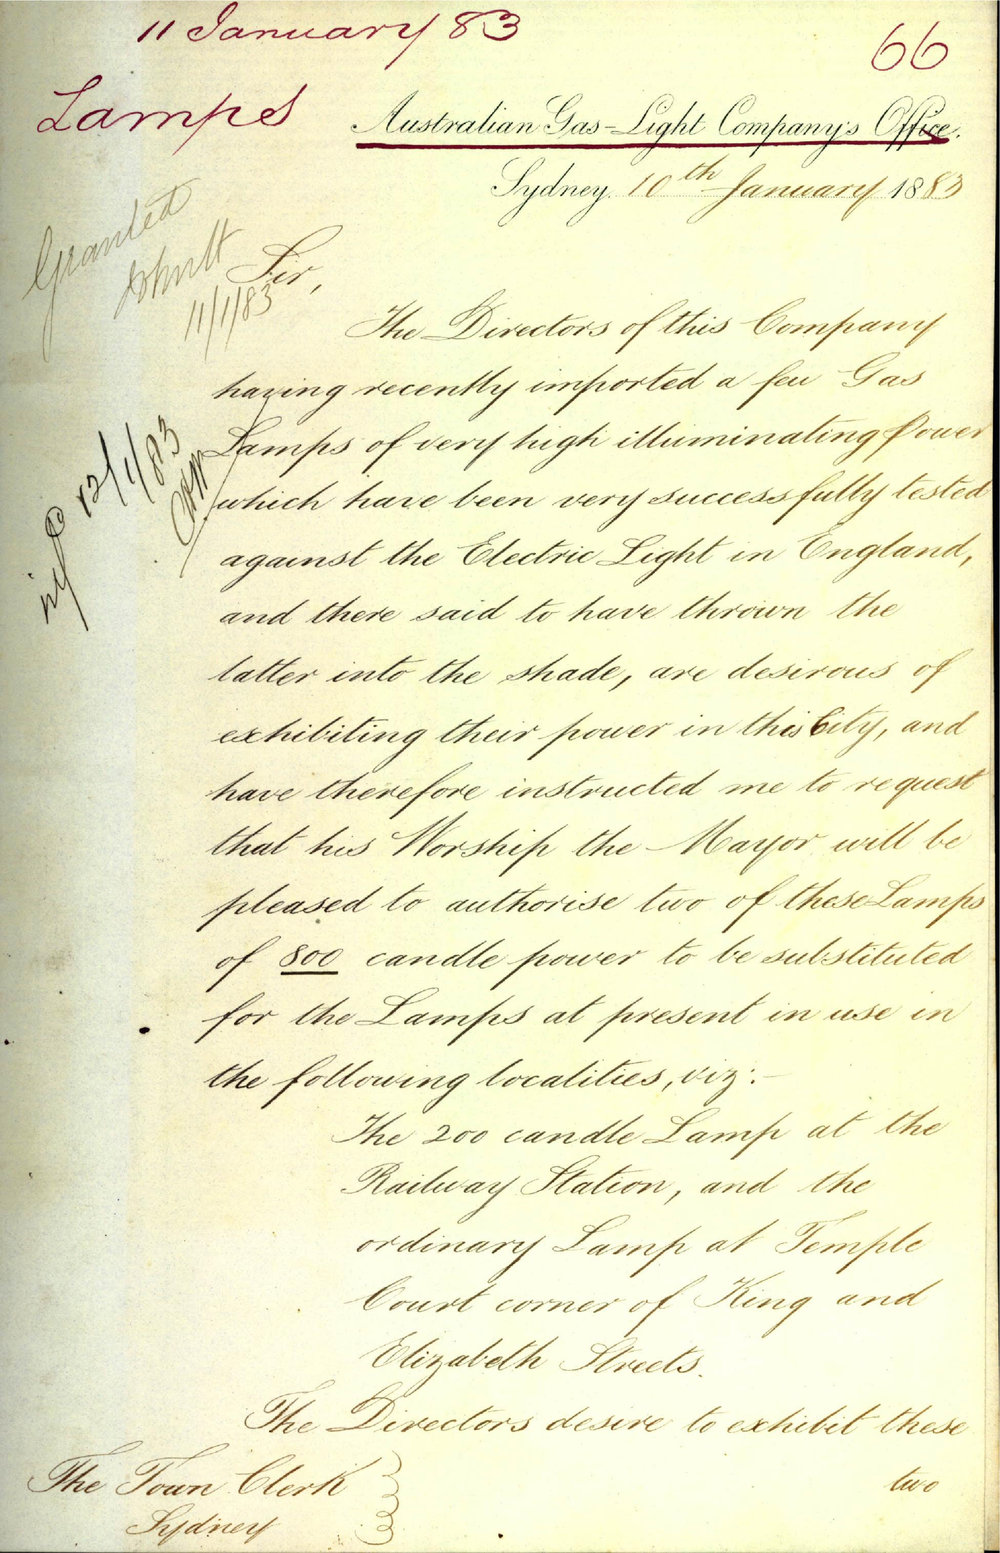 11 January 83
66
Lamps
Australian Gas-Light Company's Office.
Sydney. 10th January 1883
Granted
11/1/83
Sir,
The Directors of this Company
having recently imported a few Gas
Lamps of very high illuminating Power
which have been very successfully tested
12/1/83
against the Electric Light in England,
and there said to have thrown the
latter into the shade, are desirous of
exhibiting their power in this City, and
have therefore instructed me to request
that his Worship the Mayor will be
pleased to authorise two of these Lamps
of 800 candle power to be substituted
for the Lamps at present in use in
the following localities, viz:-
The 200 candle Lamp at the
Railway Station, and the
ordinary Lamp at Temple
Court corner of King and
Elizabeth Streets.
The Directors desire to exhibit these
two
The Town Clerk
Sydney